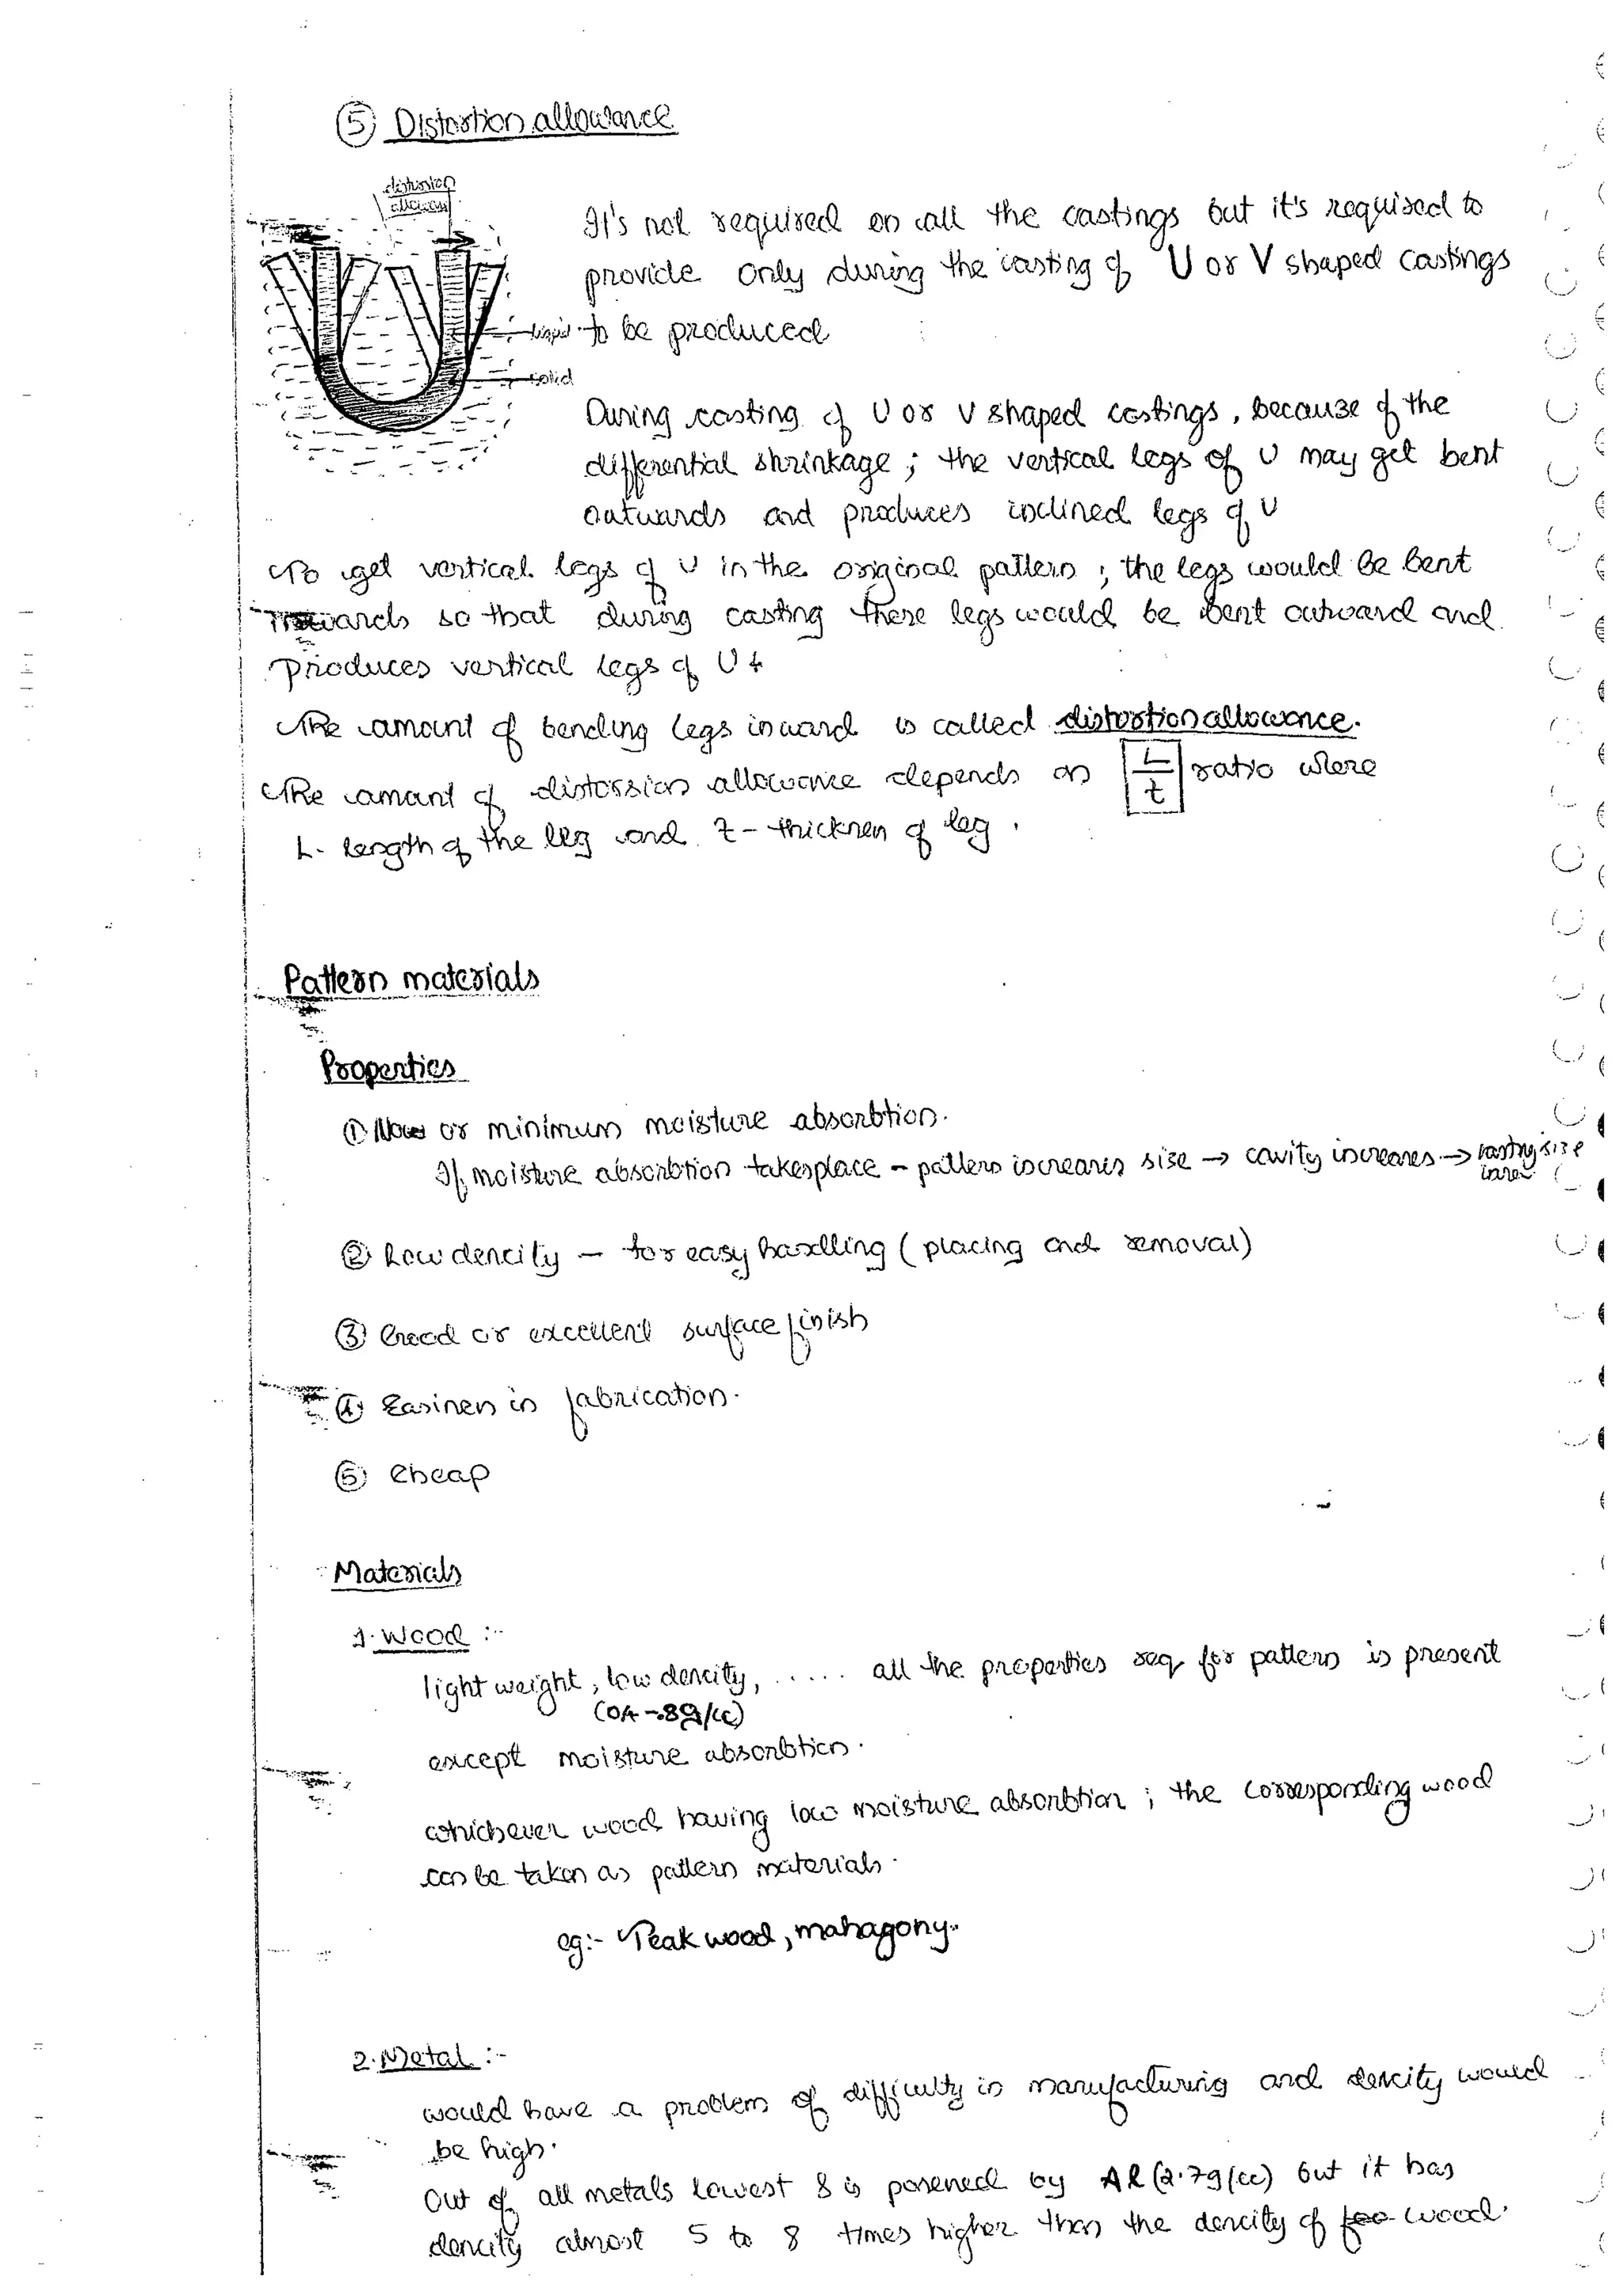 ⑤ Distortion allowance
distorsion
allowance
It's not required on all the castings but it's required to
provide only during the casting of U or V shaped castings
liquid to be produced
solid
During casting of U or V shaped castings, because of the
differential shrinkage ; the vertical legs of U may get bent
outwards and produces inclined legs of U
To get vertical legs of U in the original pattern ; the legs would be bent
inwards so that during casting these legs would be bent outward and
produces vertical legs of U
The amount of bending legs inward is called distortion allowance.
The amount of distorsion allowance depends on L/t ratio where
L- length of the leg and t- thickness of leg .
Pattern materials
Properties
① or minimum moisture absorbtion.
If moisture absorbtion takesplace - pattern increases size → cavity increases → casting size
② Low dencity - for easy handling ( placing and removal)
③ Good or excellent surface finish
④ Easiness in fabrication.
⑤ Cheap
Materials
1. Wood :-
light weight, low dencity, ..... all the properties req for pattern is present
except moisture absorbtion.
whichever wood having low moisture absorbtion ; the corresponding wood
can be taken as pattern materials.
eg:- Teak wood, mahagony.
2. Metal :-
would have a problem of difficulty in manufacturing and dencity would
be high.
Out of all metals lowest is possened by Al (2.7g/cc) but it has
dencity almost 5 to 8 times higher than the dencity of wood.